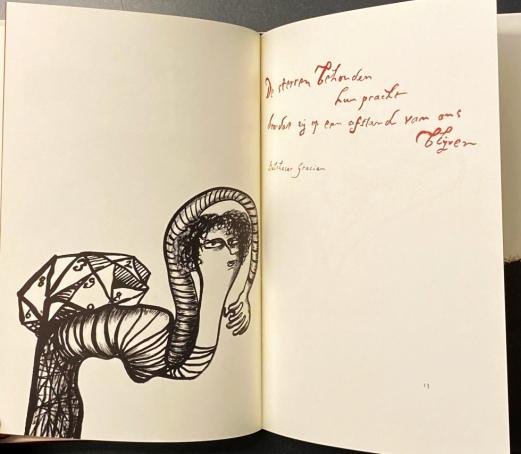 De sterren Behouden
hun pracht
doordat zij op een afstand van ons
Blijven
Baltasar Gracian